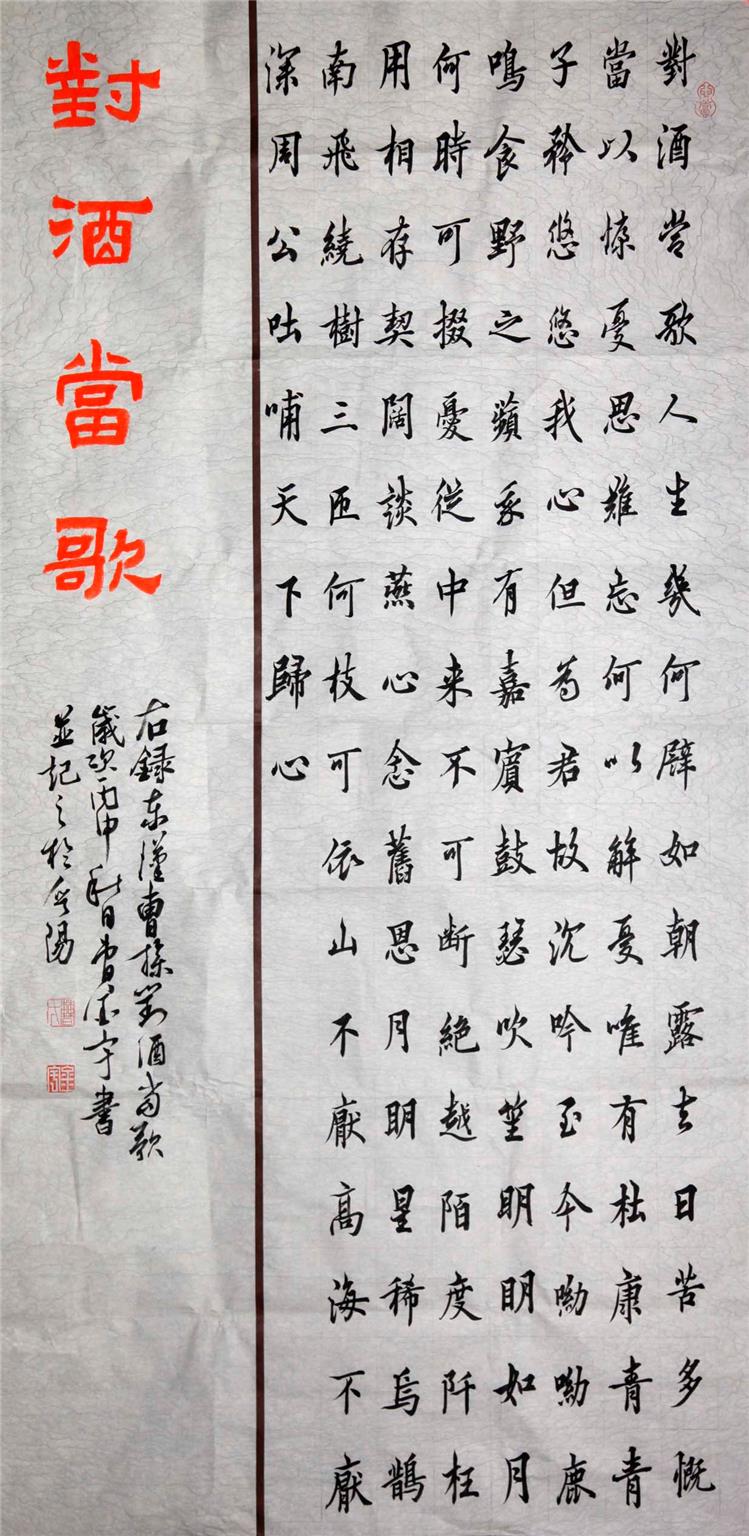 對酒當歌人生幾何辟如朝露去日苦多慨
當以慷憂思難忘何以解憂唯有杜康青青
子矜悠悠我心但為君故沉吟至今呦呦鹿
鳴食野之蘋我有嘉賓鼓瑟吹笙明明如月
何時可掇憂從中来不可断絕越陌度阡枉
用相存契闊談燕心念舊恩月明星稀烏鵲
南飛繞樹三匝何枝可依山不厭高海不厭
深周公吐哺天下歸心
對酒當歌
右録东漢曹操對酒當歌
歲次丙申秋日曹書
並記之於陽